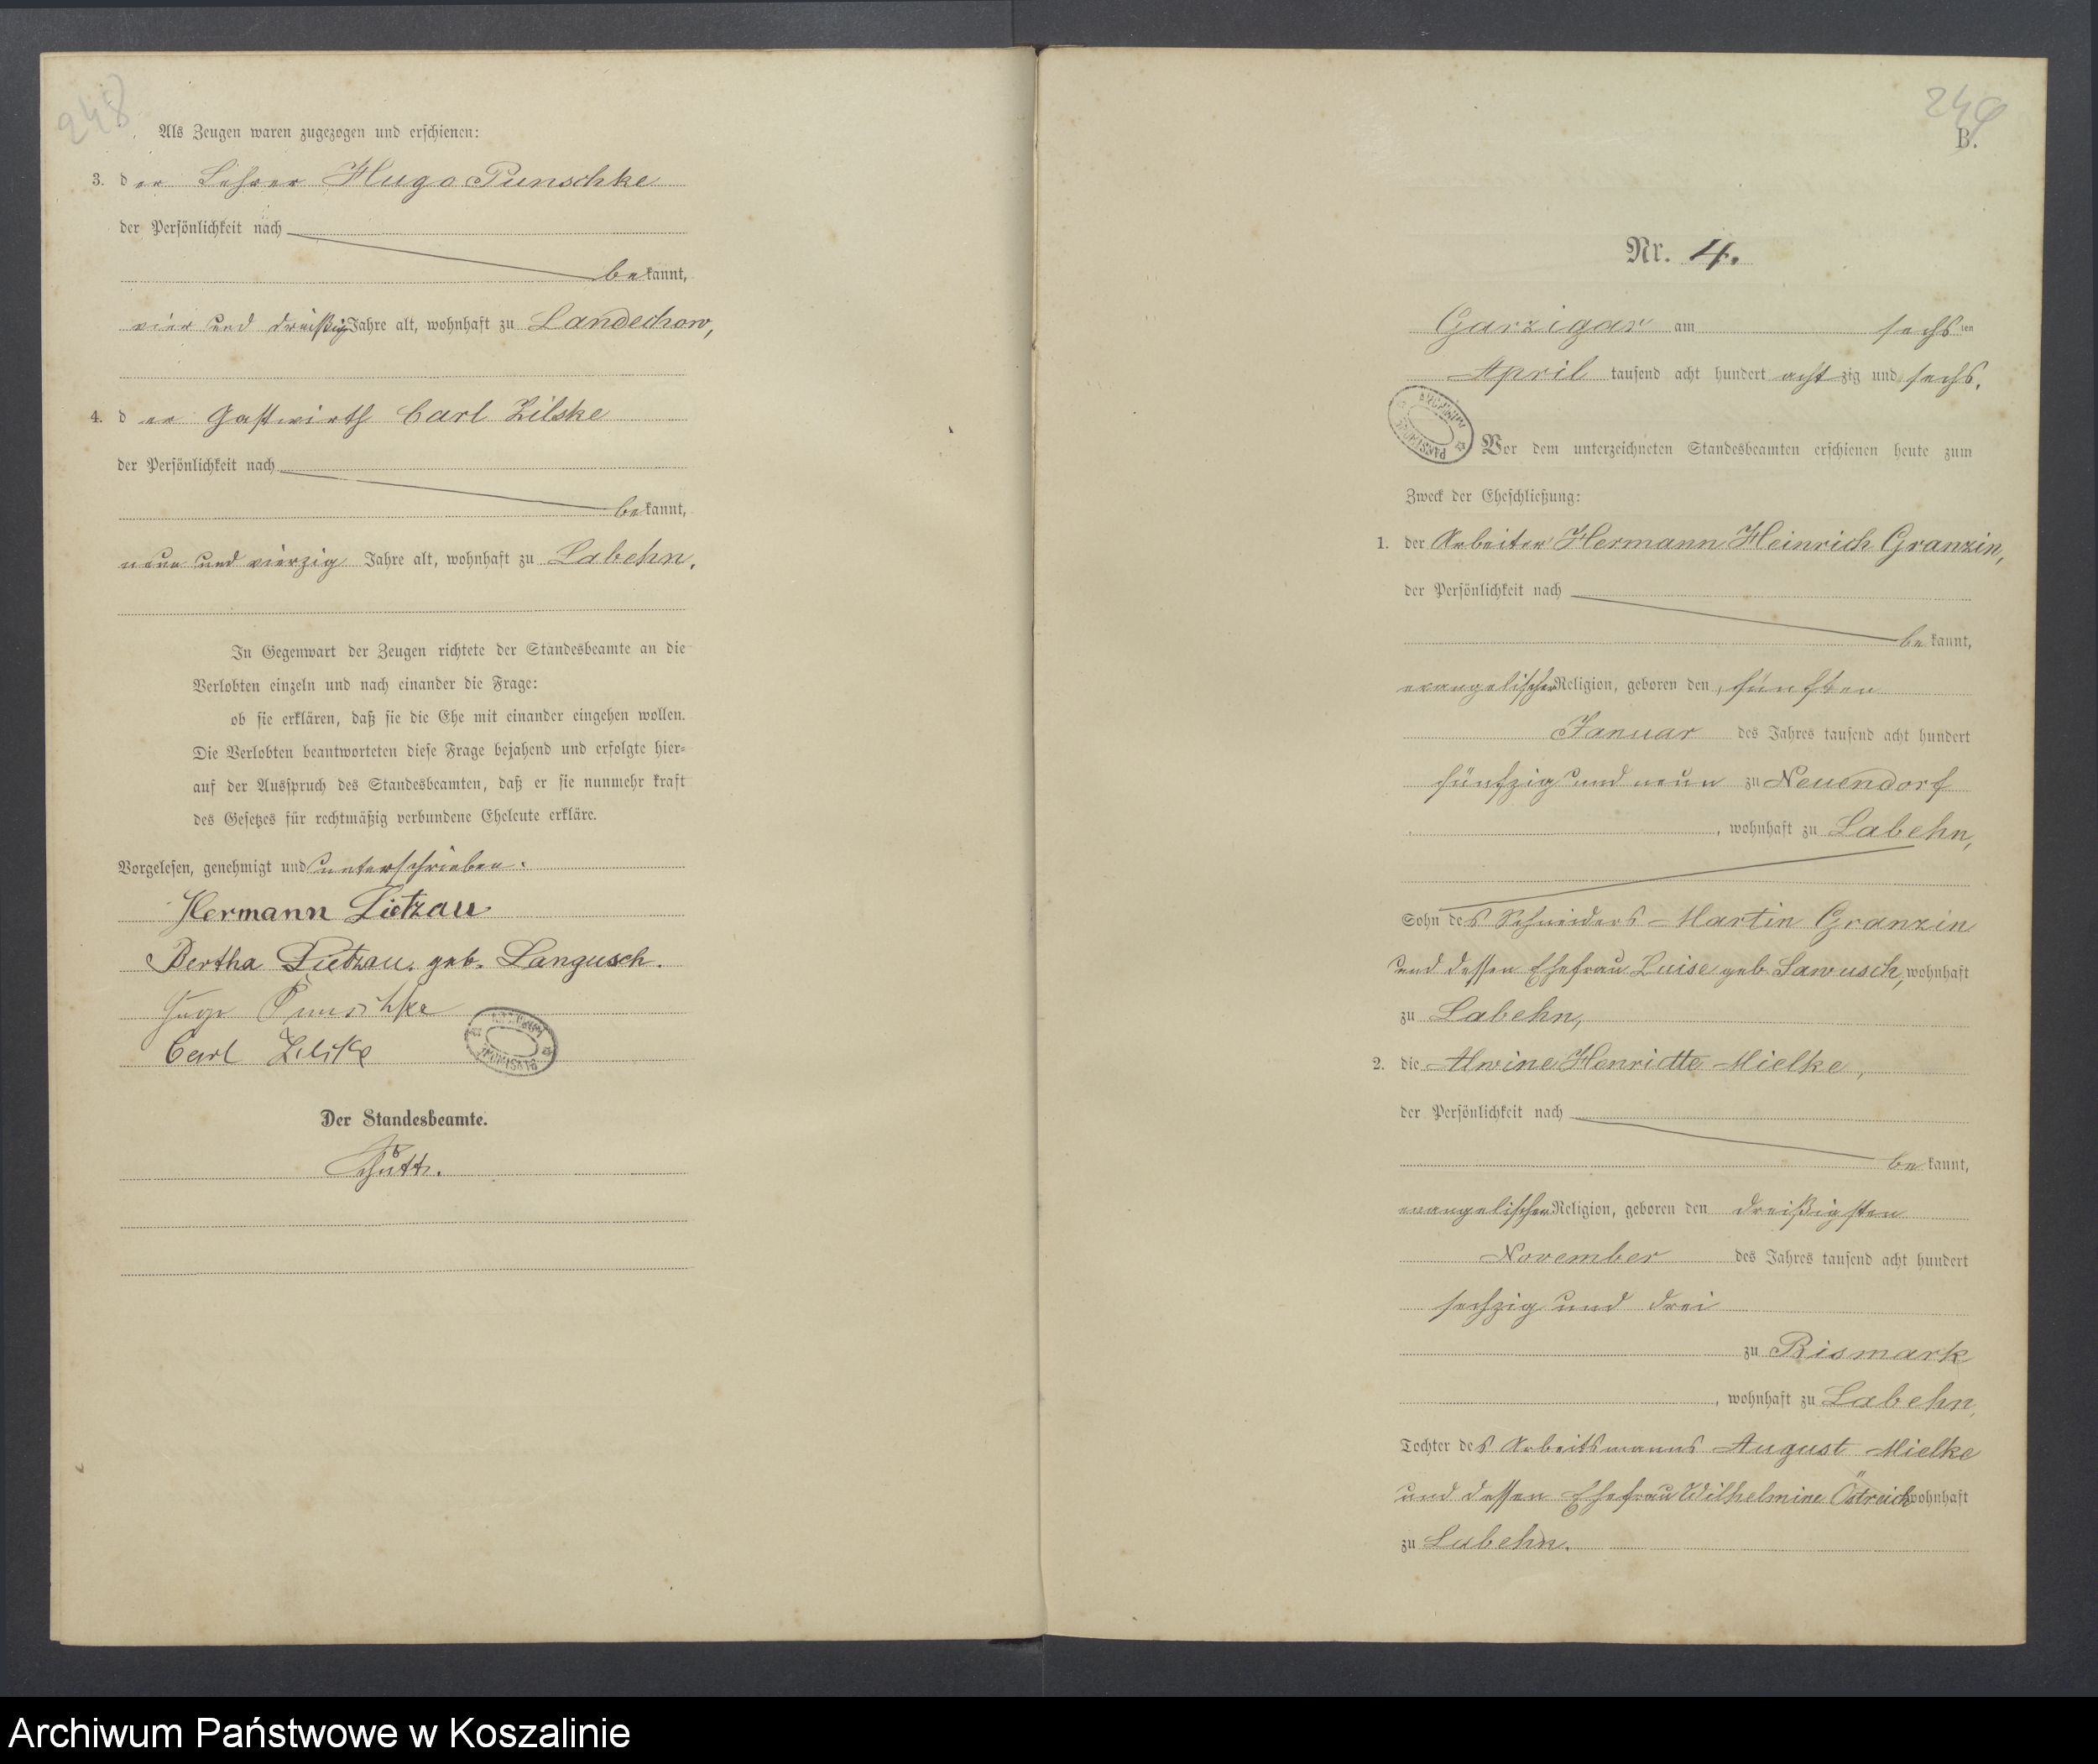 248
Als Zeugen waren zugezogen und erschienen:
3. der Lehrer Hugo Punschke
der Persönlichkeit nach
bekannt,
vier und dreißig Jahre alt, wohnhaft zu Landechow,
4. der Gastwirth Carl Zilske
der Persönlichkeit nach
bekannt,
neun und vierzig Jahre alt, wohnhaft zu Labehn.
In Gegenwart der Zeugen richtete der Standesbeamte an die
Verlobten einzeln und nach einander die Frage:
ob sie erklären, daß sie die Ehe mit einander eingehen wollen.
Die Verlobten beantworteten diese Frage bejahend und erfolgte hier=
auf der Ausspruch des Standesbeamten, daß er sie nunmehr kraft
des Gesetzes für rechtmäßig verbundene Eheleute erkläre.
Vorgelesen, genehmigt und unterschrieben.
Hermann Lietzau
Bertha Lietzau. geb. Langusch.
Hugo Punschke
Carl Zilske
Der Standesbeamte.
249
B.
Nr. 4.
Garzigar am sechsten
April tausend acht hundert achtzig und sechs.
Vor dem unterzeichneten Standesbeamten erschienen heute zum
Zweck der Eheschließung:
1. der Arbeiter Hermann Heinrich Granzin,
der Persönlichkeit nach
bekannt,
evangelischer Religion, geboren den fünften
Januar des Jahres tausend acht hundert
fünfzig und neun zu Neuendorf
, wohnhaft zu Labehn,
Sohn des Schneiders Martin Granzin
und dessen Ehefrau Luise geb. Sawusch, wohnhaft
zu Labehn,
2. die Alwine Henriette Mielke,
der Persönlichkeit nach
bekannt,
evangelischer Religion, geboren den dreißigsten
November des Jahres tausend acht hundert
sechzig und drei
zu Bismark
, wohnhaft zu Labehn,
Tochter des Arbeitsmanns August Mielke
und dessen Ehefrau Wilhelmine Östreich wohnhaft
zu Labehn.
Archiwum Państwowe w Koszalinie